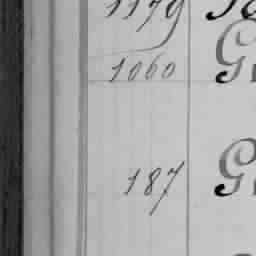 1179
1060 G
187 G